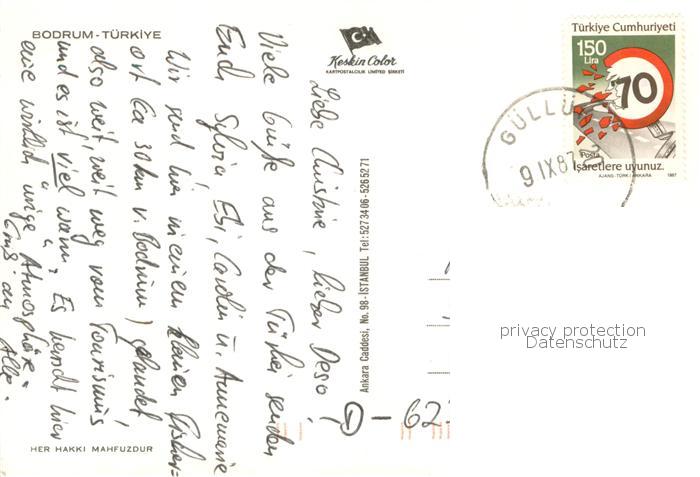 BODRUM-TÜRKİYE
Keskin Color
KARTPOSTALCILIK LIMITED ŞİRKETİ
Türkiye Cumhuriyeti
150
Lira
70
Posta
İşaretlere uyunuz.
AJANS-TÜRK/ANKARA 1987
GÜLLÜ
9 IX 87
Liebe Christine, lieber Deso,
Viele Grüße aus der Türkei senden
Euch Sylvia, Edi, Carolin u. Annemarie
Wir sind hier in einem kleinen Fischer=
ort (ca 30 km v. Bodrum) gelandet,
also weit, weit weg vom Tourismus
und es ist viel warm. Es herrscht hier
eine wirklich urige Atmosphäre.
Gruß an Alle.
Ankara Caddesi, No. 98-İSTANBUL Tel: 5273406-5265271
D-62
privacy protection
Datenschutz
HER HAKKI MAHFUZDUR